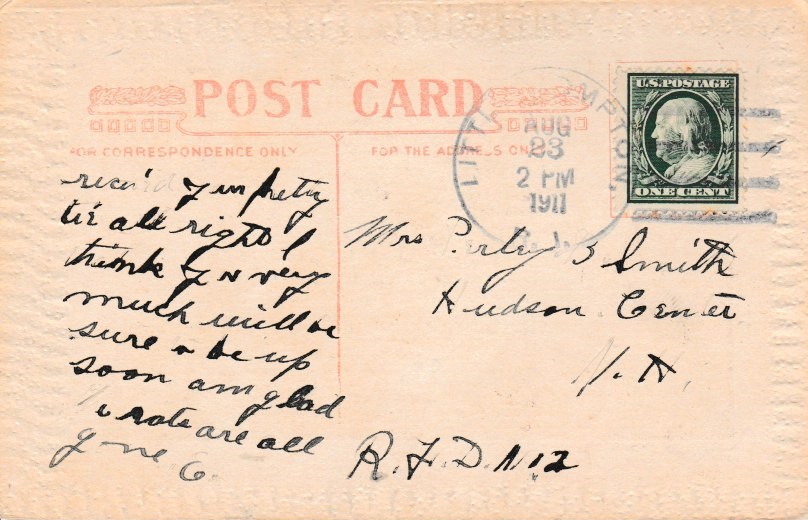 POST CARD
FOR CORRESPONDENCE ONLY
FOR THE ADDRESS ONLY
LITTLE COMPTON,
AUG
23
2 PM
1911
R.I.
U.S. POSTAGE
ONE CENT
pretty
tie all right I
think very
much will be
sure be up
soon am glad
are all
gone
Mrs Perley Smith
Hudson Center
N. H.
R. F. D. No 2